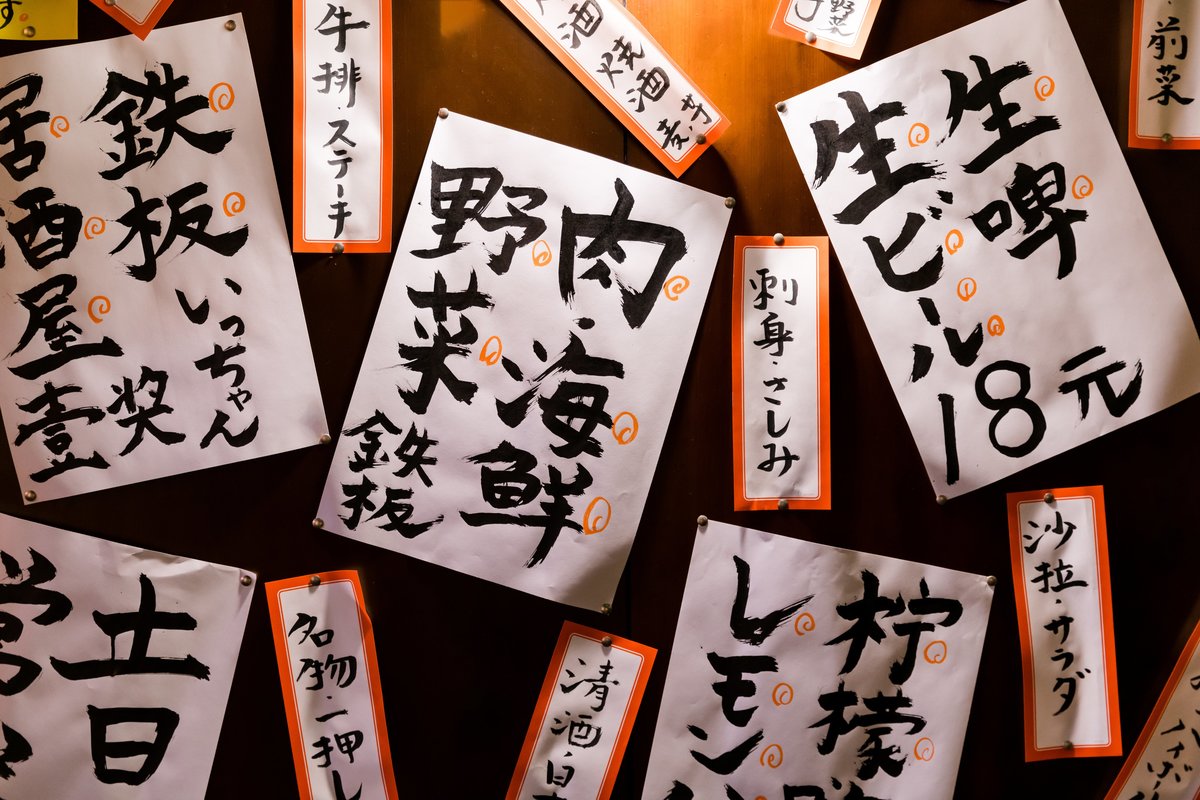 鉄板いっちゃん
居酒屋壹
奖
牛排・ステーキ
酒・焼酒
麦・芋
野菜
前菜
肉・海鮮
野菜
鉄板
刺身・さしみ
生啤
生ビール
18元
土日
名物・一押し
清酒・日
柠檬
レモン
沙拉・サラダ